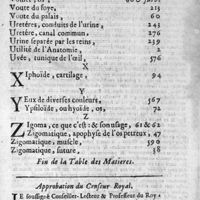 Voute du foye, 25
Voute du palais, 60
Ureteres, conduits de l'urine, 243
Uretére, canal commun, 276
Urine separée par les reins, 239
Utilité de l'Anatomie, 2
Uvée, tunique de l'œil, 576
X
Xiphoïde, cartilage, 94
Y
Yeux de diverses couleurs, 567
Ypsiloïde, ou hyoïde, os, 72
Z
Zigoma, ce que c'est : & son usage, 61 & 62
Zigomatique, apophyse de l'os petreux, 47
Zigomatique, muscle, 590
Zigomatique, suture, 38
Fin de la Table des Matieres.
Approbation du Censeur Royal.
Je soussigné Conseiller-Lecteur & Professeur du Roy